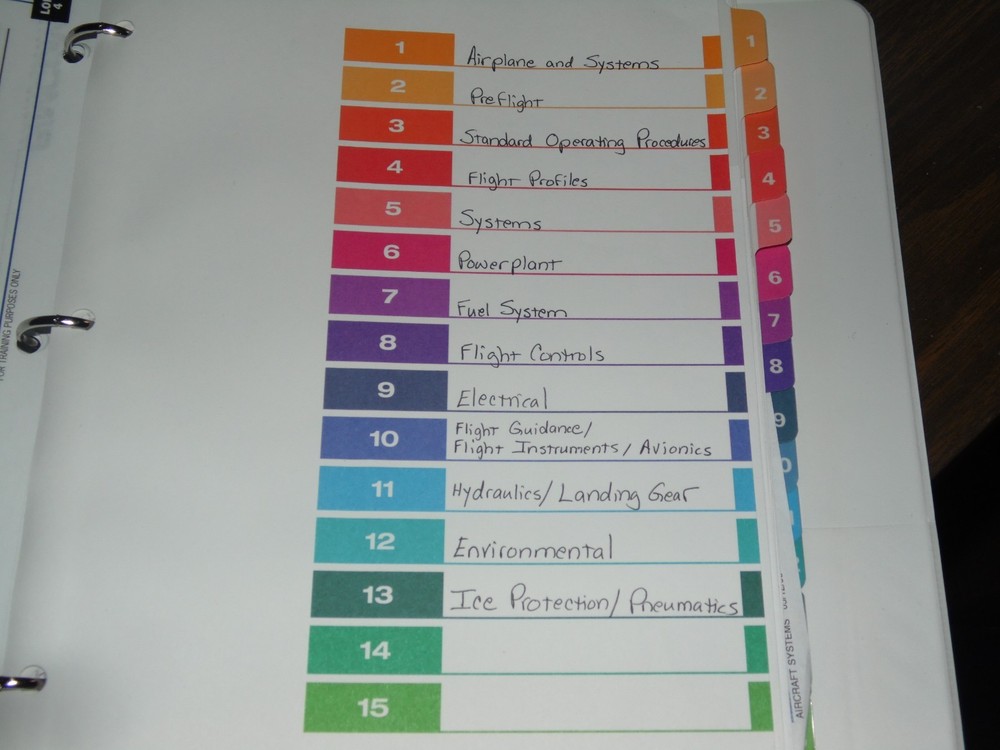 4
1 Airplane and Systems
2 Preflight
3 Standard Operating Procedures
4 Flight Profiles
5 Systems
6 Powerplant
7 Fuel System
8 Flight Controls
9 Electrical
10 Flight Guidance/
Flight Instruments/Avionics
11 Hydraulics/Landing Gear
12 Environmental
13 Ice Protection/Pneumatics
14
15
1
2
3
4
5
6
7
8
9
FOR TRAINING PURPOSES ONLY
AIRCRAFT SYSTEMS